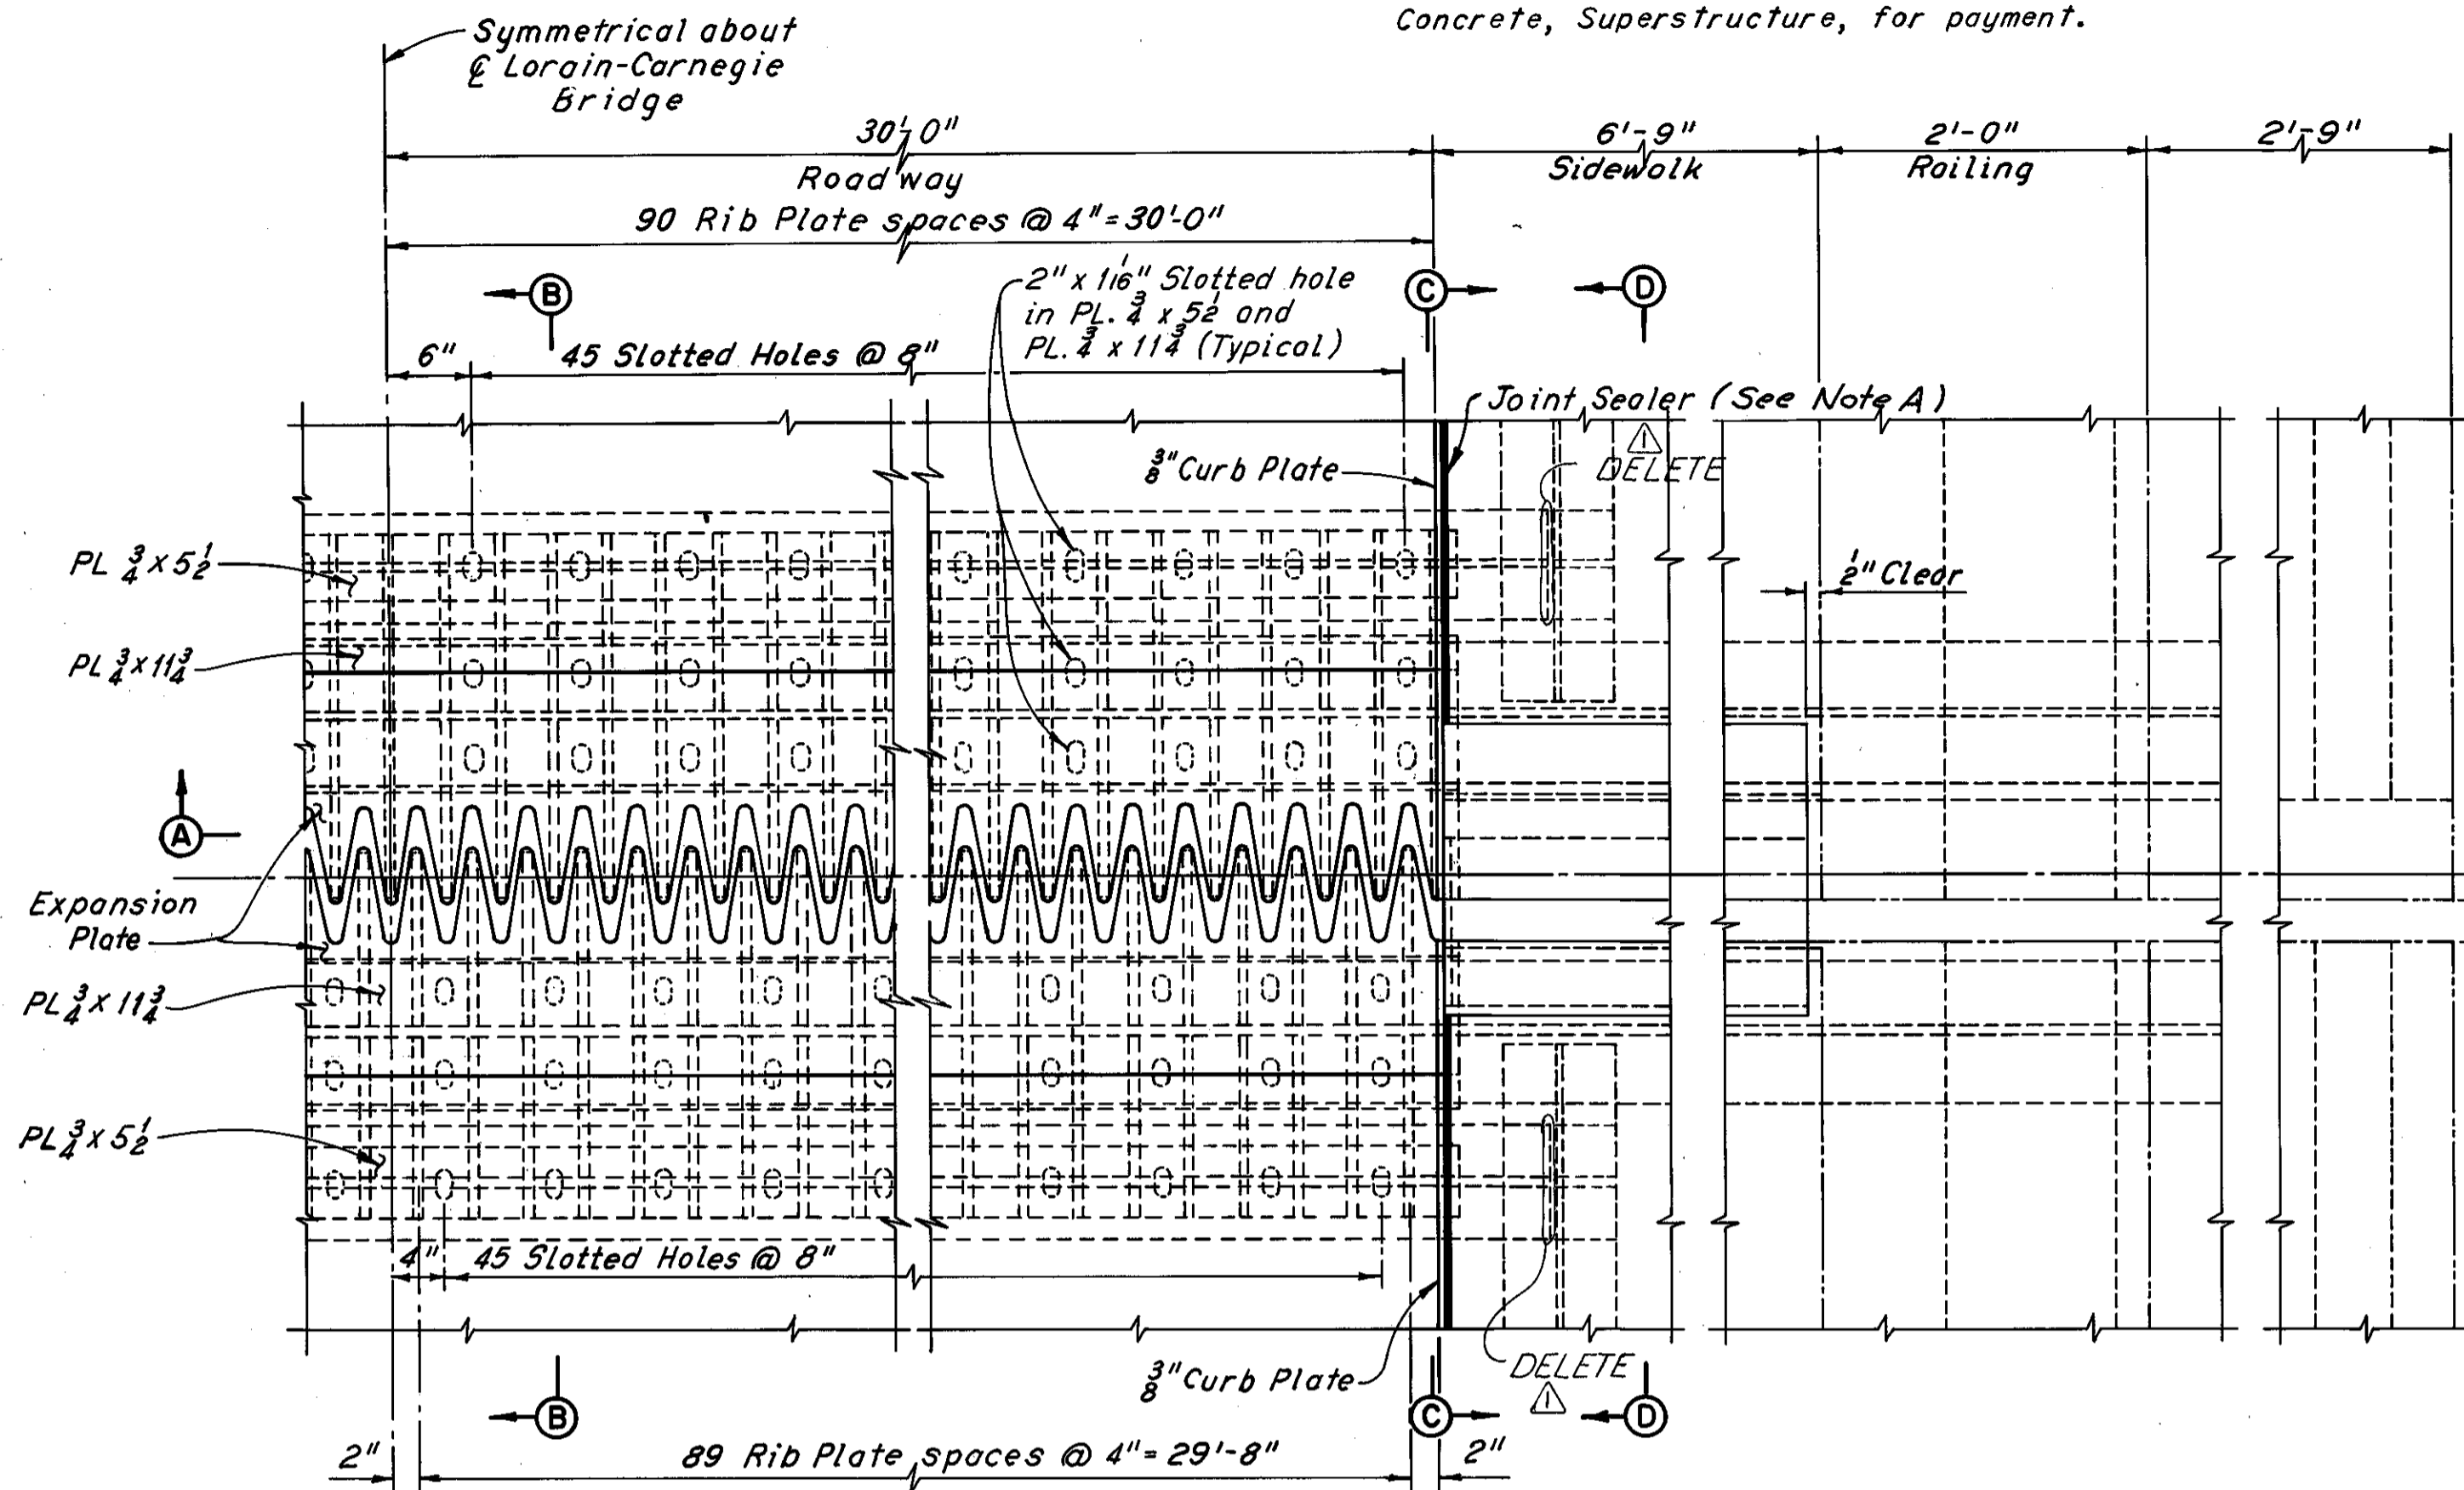 Concrete, Superstructure, for payment.
Symmetrical about
℄ Lorain-Carnegie
Bridge
30'-0"
6'-9"
2'-0"
2'-9"
Roadway
Sidewalk
Railing
90 Rib Plate spaces @ 4"=30'-0"
B
2" x 1 1/16" Slotted hole
in PL. 3/4 x 5 1/2 and
PL. 3/4 x 11 3/4 (Typical)
C
D
6"
45 Slotted Holes @ 8"
Joint Sealer (See Note A)
1
3/8" Curb Plate
DELETE
PL 3/4 x 5 1/2
1/2" Clear
PL 3/4 x 11 3/4
A
Expansion
Plate
PL 3/4 x 11 3/4
PL 3/4 x 5 1/2
4"
45 Slotted Holes @ 8"
3/8" Curb Plate
DELETE
1
B
C
D
2"
89 Rib Plate spaces @ 4"=29'-8"
2"